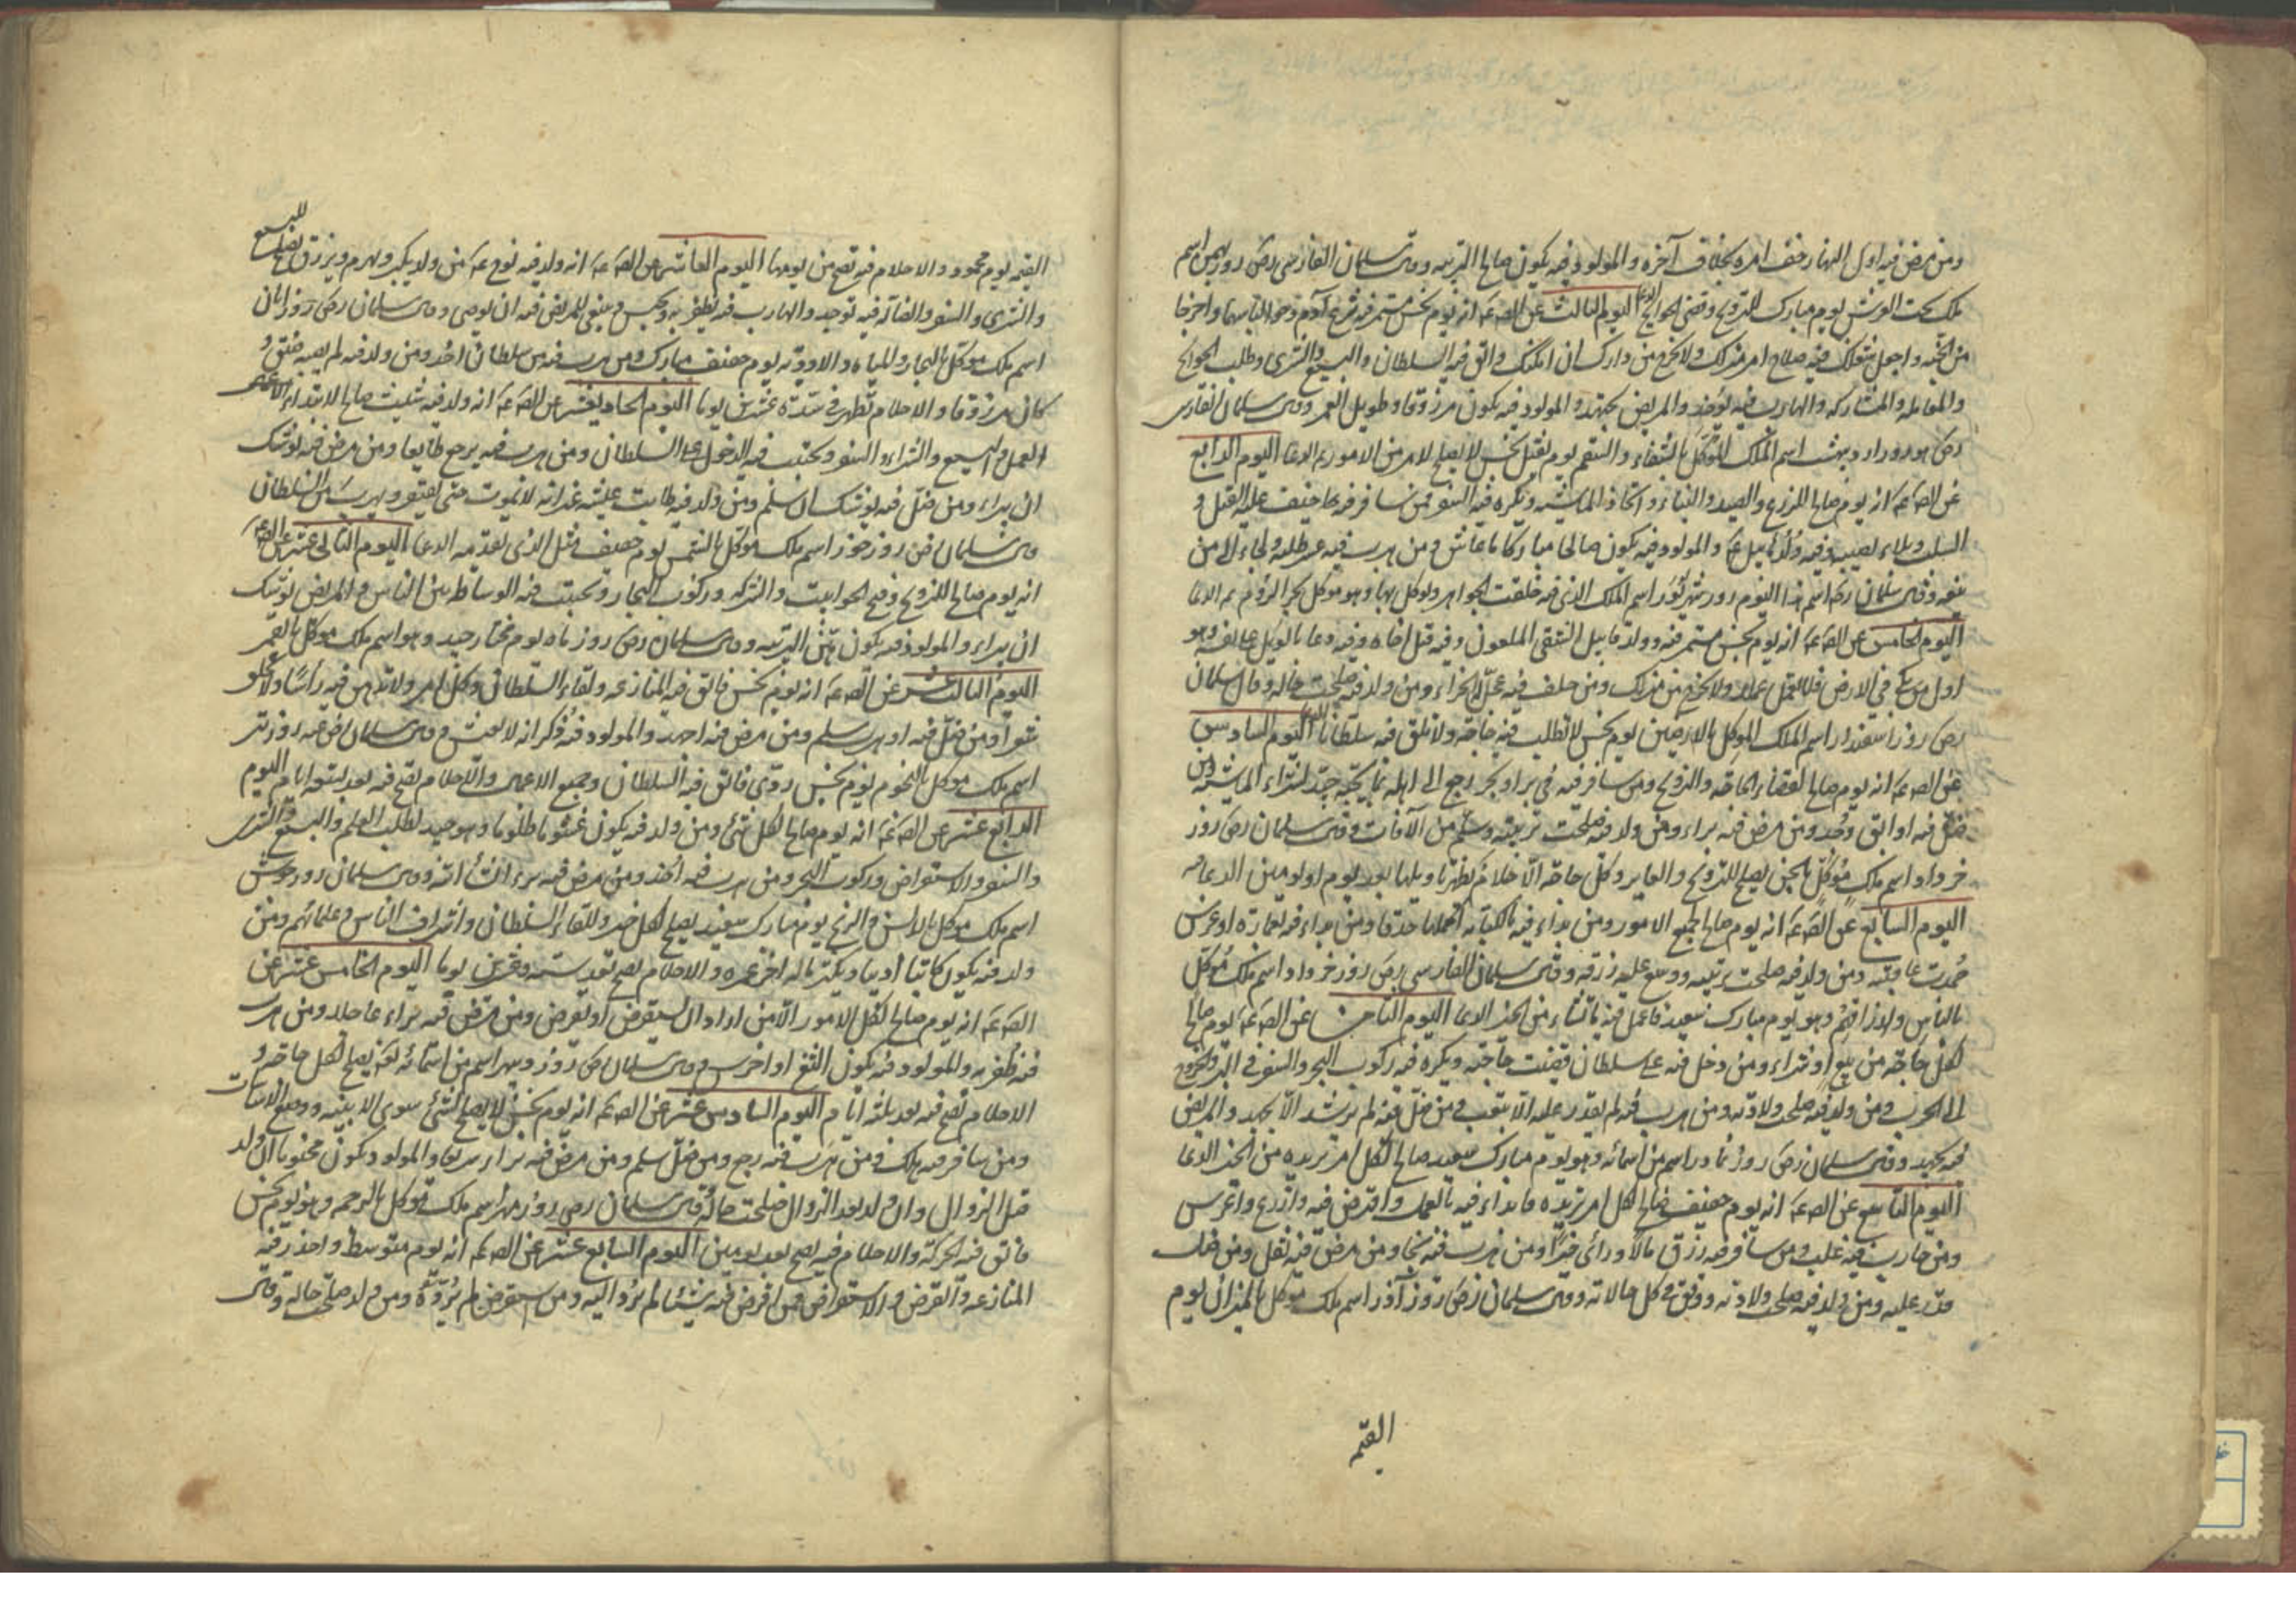 ومن مرض فيه اول النهار خف امره بخلاف آخره والمولود فيه يكون صالح التربيه وقال سلمان الفارسى رض روز بهمن اسم
ملك تحت العرش يوم مبارك للتزويج وقضى الحوايج اليوم الثالث عن الص ع انه يوم نحس مستمر فيه نزع آدم وحوا لباسهما واخرجا
من الجنه واجعل شغلك فيه صلاح امر منزلك ولا تخرج من دارك ان امكنك واتق فيه السلطان والبيع والشرى وطلب الحوائج
والمعامله والمشاركه والهارب فيه يؤخذ والمريض يجهد والمولود فيه يكون مرزوقا وطويل العمر وقال سلمان الفارسى
رض هو روز ارديبهشت اسم الملك الموكل بالشفاء والسقم يوم ثقيل نحس لا يصلح لامر من الامور اليوم الرابع
عن الص ع انه يوم صالح للزرع والصيد والبناء واتخاذ الماشيه ويكره فيه السفر فمن سافر فيه خيف عليه القتل و
السلب وبلاء يصيبه وفيه ولد هابيل ع والمولود فيه يكون صالحا مباركا ما عاش ومن هرب فيه عسر طلبه ولجاء الى من
يمنعه وقال سلمان اسم هذا اليوم روز شهريور اسم الملك الذى فيه خلقت الجواهر ووكل بها وهو موكل ببحر الروم
اليوم الخامس عن الص ع انه يوم نحس مستمر فيه ولد قابيل الشقى الملعون وفيه قتل اخاه وفيه دعا بالويل على نفسه وهو
اول من بكى فى الارض فلا تعمل عملا ولا تخرج من منزلك ومن حلف فيه عجل له الجزاء ومن ولد فيه صلحت حاله وقال سلمان
رض روز اسفندار اسم الملك الموكل بالارضين يوم نحس لا تطلب فيه حاجة ولا تلق فيه سلطانا اليوم السادس
عن الص ع انه يوم صالح لقضاء الحاجه والتزويج ومن سافر فيه فى بر او بحر رجع الى اهله بما يحبه جيد لشراء الماشيه ومن
ضل فيه او ابق وجد ومن مرض فيه براء ومن ولد فيه صلحت تربيته وسلم من الآفات وقال سلمان رض روز
خرداد اسم ملك موكل بالجن يصلح للتزويج والمعاش وكل حاجه الاحلام يظهر تاويلها بعد يوم او يومين الدعا
اليوم السابع عن الص ع انه يوم صالح لجميع الامور ومن بداء فيه بالكتابه اكملها حذقا ومن بداء فيه بعماره او غرس
حمدت عاقبته ومن ولد فيه صلحت تربيته ووسع عليه رزقه وقال سلمان الفارسى رض روز مرداد اسم ملك موكل
بالناس وارزاقهم وهو يوم مبارك سعيد فاعمل فيه ما تشاء من الخير الدعا اليوم الثامن عن الص ع يوم صالح
لكل حاجة من بيع او شراء ومن دخل فيه على سلطان قضيت حاجته ويكره فيه ركوب البحر والسفر فى البر والخروج
الى الحرب ومن ولد فيه صلحت ولادته ومن هرب فيه لم يقدر عليه الا بتعب ومن ضل فيه لم يرشد الا بجهد والمريض
فيه يجهد وقال سلمان رض روز ديبادر اسم من اسمائه وهو يوم مبارك سعيد صالح لكل امر تريده من الخير الدعا
اليوم التاسع عن الص ع انه يوم خفيف صالح لكل امر تريده فابداء فيه بالعمل واقترض فيه وازرع واغرس
ومن حارب فيه غلب ومن سافر فيه رزق مالا وراى خيرا ومن هرب فيه نجا ومن مرض فيه ثقل ومن ضل
قدر عليه ومن ولد فيه صلحت ولادته ووفق فى كل حالاته وقال سلمان رض روز آذر اسم ملك موكل بالميزان يوم
القيمه
القيمه يوم محمود والاحلام فيه تصح من يومها اليوم العاشر عن الص ع انه ولد فيه نوح ع من ولد يكبر ويهرم ويرزق يصلح للبيع
والشرى والسفر والضالة فيه توجد والهارب فيه يظفر به ويحبس وينبغى للمريض فيه ان يوصى وقال سلمان رض روز ابان
اسم ملك موكل بالبحار والمياه والاوديه يوم خفيف مبارك ومن هرب فيه من سلطان اخذ ومن ولد فيه لم يصبه ضيق و
كان مرزوقا والاحلام تظهر فى مدة عشرين يوما اليوم الحاد يعشر عن الص ع انه ولد فيه شيث صالح لابتداء
العمل والبيع والشراء والسفر ويجتنب فيه الدخول على السلطان ومن هرب فيه يرجع طايعا ومن مرض فيه يوشك
ان يبراء ومن ضل فيه يوشك ان يسلم ومن ولد فيه طابت عيشته غير انه لا يموت حتى يفتقر ويهرب من السلطان
وقال سلمان رض روز خور اسم ملك موكل بالشمس يوم خفيف مثل الذى تقدمه الدعا اليوم الثانى عشر عن الص ع
انه يوم صالح للتزويج وفتح الحوانيت والشركه وركوب البحار ويجتنب فيه الوساطه بين الناس والمريض يوشك
ان يبراء والمولود فيه يكون هين التربيه وقال سلمان رض روز ماه يوم مختار جيد وهو اسم ملك موكل بالقمر
اليوم الثالث عشر عن الص ع انه يوم نحس فاتق فيه المنازعه ولقاء السلطان وكل امر ولا تدهن فيه راسا ولا تحلق
شعرا ومن ضل فيه او هرب سلم ومن مرض فيه اجهد والمولود فيه ذكر انه لا يعيش وقال سلمان رض روز تير
اسم ملك موكل بالنجوم يوم نحس ردى فاتق فيه السلطان وجميع الاعمال والاحلام تصح فيه بعد تسعه ايام اليوم
الرابع عشر عن الص ع انه يوم صالح لكل شئ ومن ولد فيه يكون غشوما ظلوما وهو جيد لطلب العلم والبيع والشرى
والسفر والاستقراض وركوب البحر ومن هرب فيه اخذ ومن مرض فيه برء ان شاء الله وقال سلمان روز جوش
اسم ملك موكل بالانس والريح يوم مبارك سعيد يصلح لكل خير وللقاء السلطان واشراف الناس وعلمائهم ومن
ولد فيه يكون كاتبا اديبا ويكثر ماله اخر عمره والاحلام تصح بعد سته وعشرين يوما اليوم الخامس عشر عن
الص ع انه يوم صالح لكل الامور الا من اراد ان يستقرض او يقرض ومن مرض فيه براء عاجلا ومن هرب
فيه ظفر به والمولود فيه يكون الثغ او اخرس وقال سلمان رض روز ديبمهر اسم من اسمائه تع يصلح لكل حاجه و
الاحلام تصح فيه بعد ثلثه ايام اليوم السادس عشر عن الص ع انه يوم نحس لا يصلح لشئ سوى الابنيه ووضع الاساسات
ومن سافر فيه هلك ومن هرب فيه رجع ومن ضل سلم ومن مرض فيه براء سريعا والمولود يكون مجنونا ان ولد
قبل الزوال وان ولد بعد الزوال صلحت حاله وقال سلمان رض روز مهر اسم ملك موكل بالرحمه وهو يوم نحس
فاتق فيه الحركة والاحلام فيه تصح بعد يومين اليوم السابع عشر عن الص ع انه يوم متوسط واحذر فيه
المنازعه والقرض والاستقراض فمن اقرض فيه شيئا لم يرد اليه ومن استقرض لم يرده ومن ولد صلحت حاله وقال